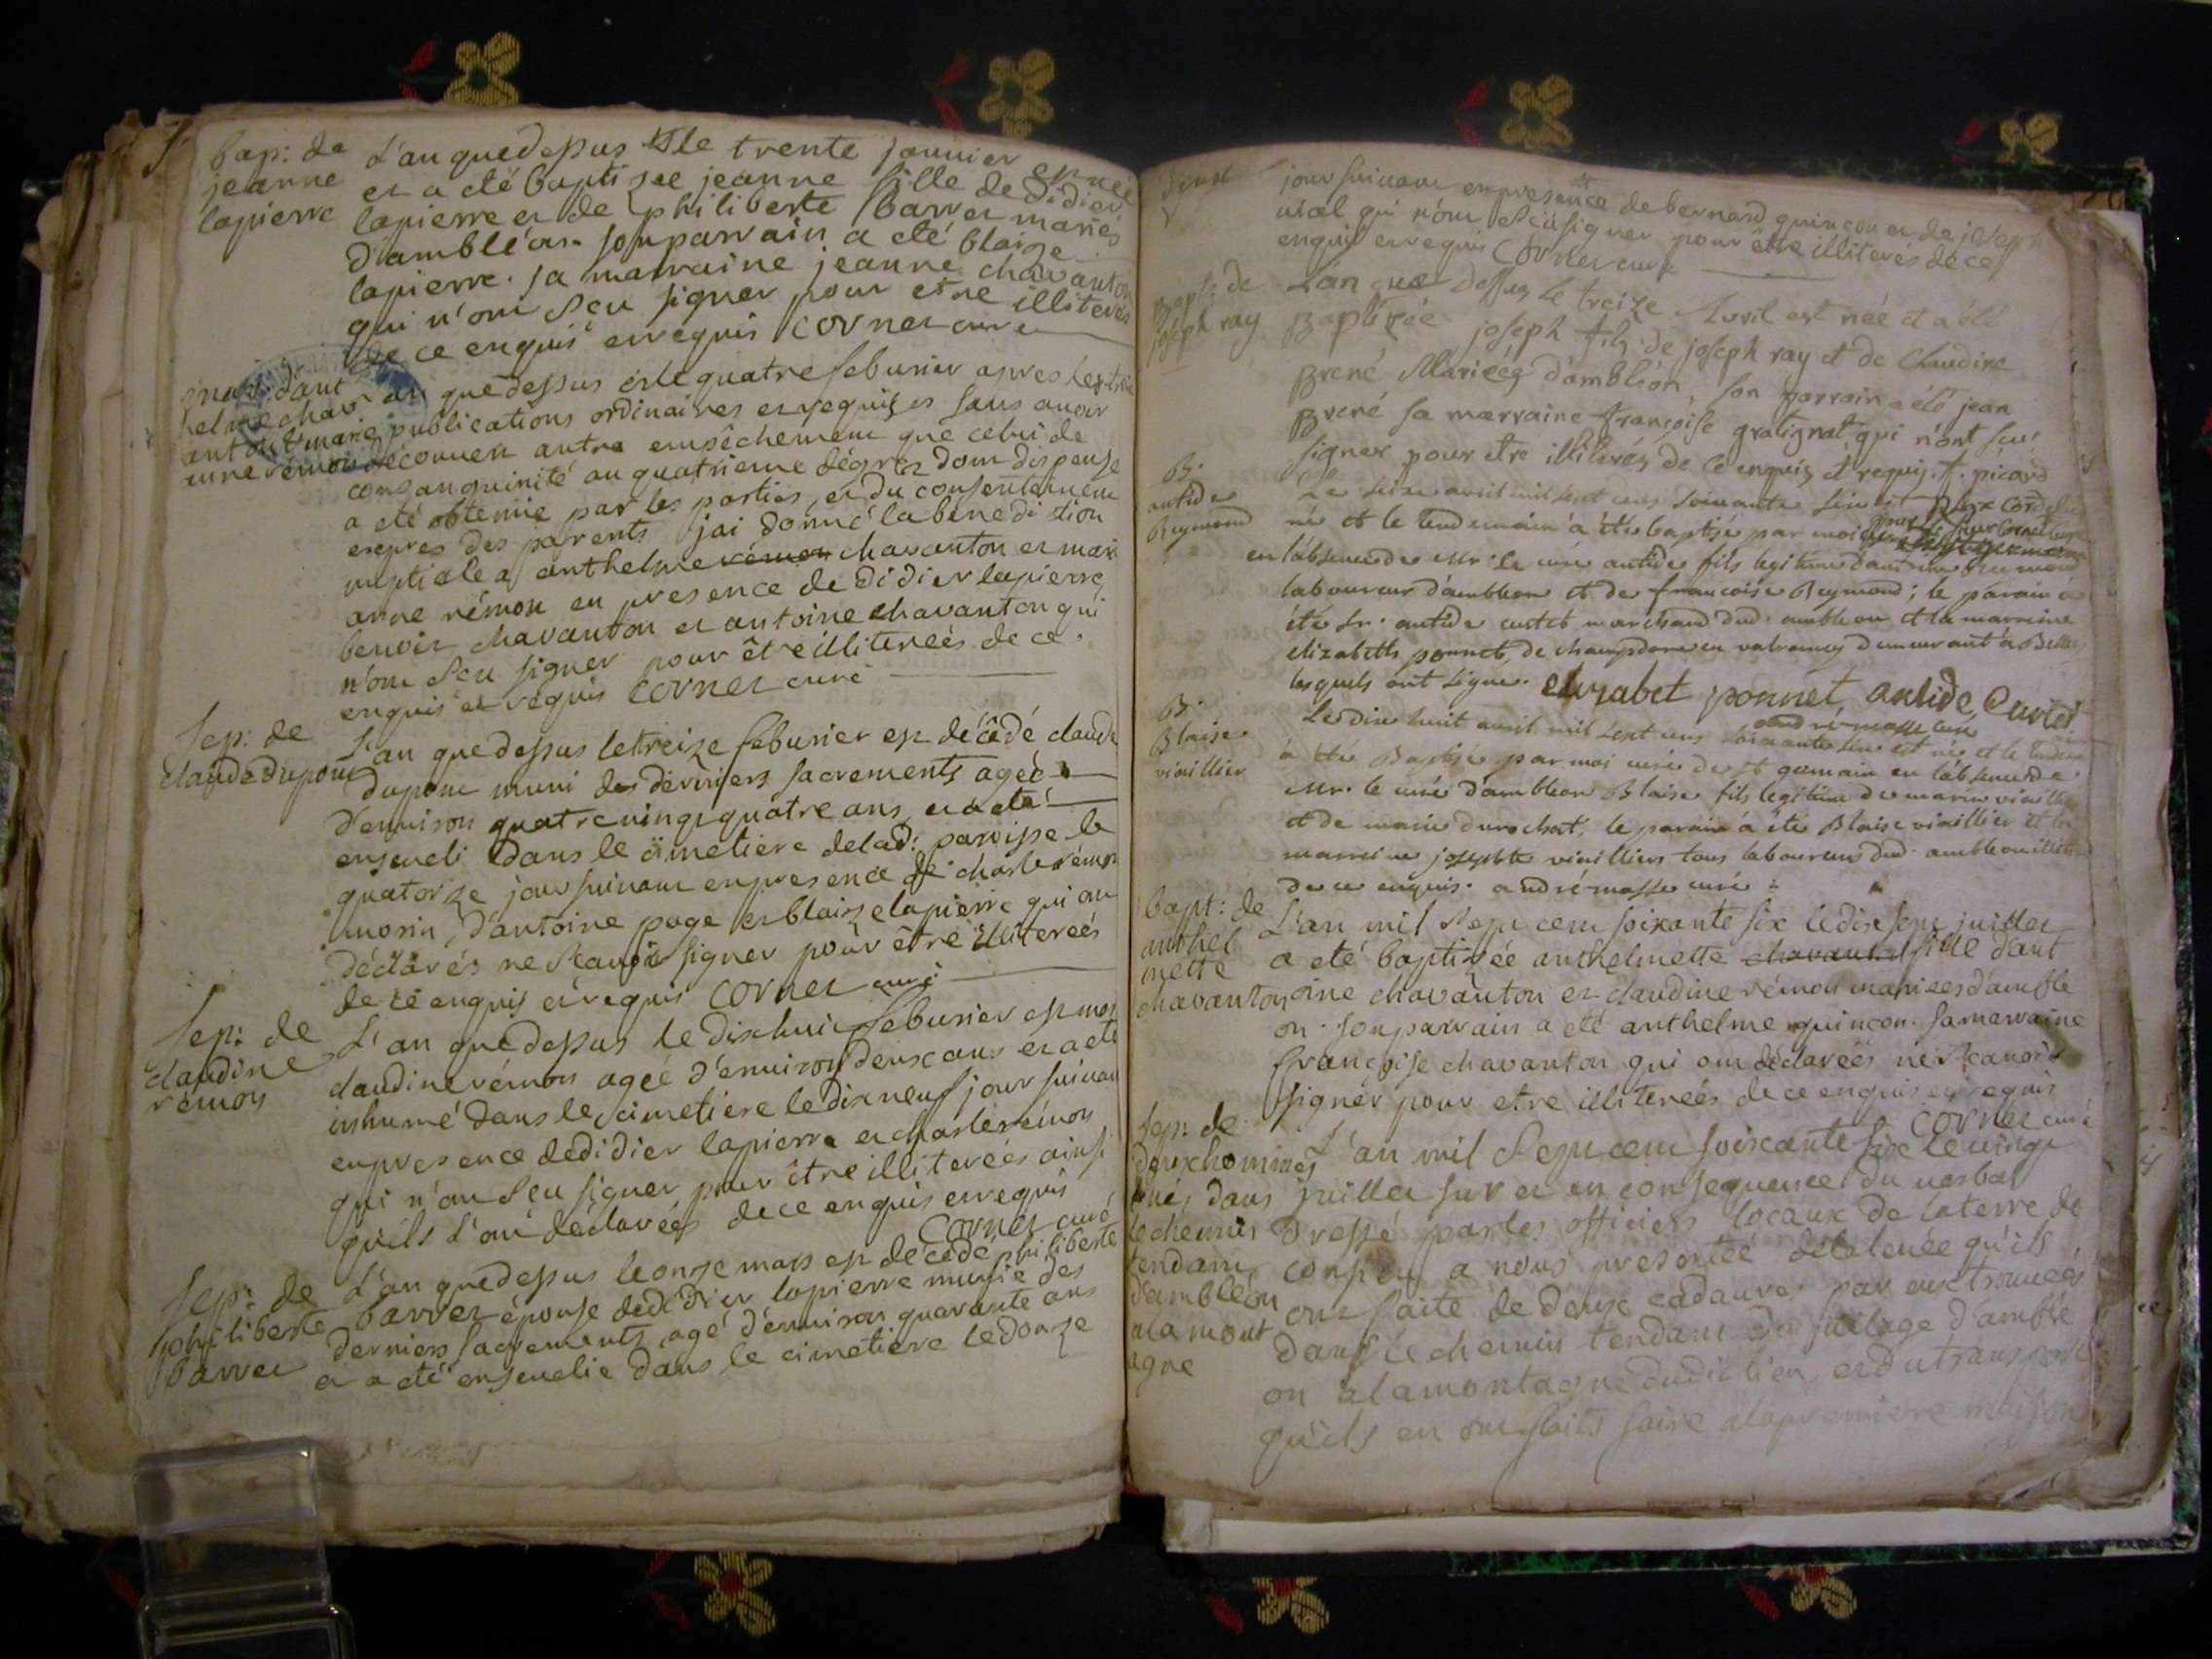 bap: de
jeanne
lapierre
L'an que dessus le trente januier est née
et a eté baptisee jeanne fille de didier
lapierre et de philiberte barret mariés
d'ambléon. son parrain a eté blaise
lapierre. sa marraine jeanne chavanton
qui n'ont sçu signer pour etre illiterés
de ce enquis et requis cornet curé
mari: d'ant
helme chav
anton et marie
anne rémon
L'an que dessus et le quatre feburier apres les trois
publications ordinaires et requises sans auoir
découuert autre empêchement que celui de
consanguinité au quatrieme dégrez dont dispense
a eté obtenüe par les parties, et du consentement
exprès des parents j'ai donné la bénédiction
nuptiale a anthelme rémon chavanton et marie
anne rémon en presence de didier lapierre
benoit chavanton et antoine chavanton qui
n'ont sçu signer pour être illitereés de ce
enquis et requis cornet curé
sep: de
claude dupont
L'an que dessus le treize feburier est décédé claude
dupont muni des derniers sacrements ageé
d'enuiron quatre uingt quatre ans, et a eté
enseueli dans le cimetiere de lad: paroisse le
quatorze jour suiuant en presence de charle rémon
morin, d'antoine page et blaise lapierre qui ont
déclarés ne scauoir signer pour être illitereés
de ce enquis et requis cornet curé
sep: de
claudine
rémon
L'an que dessus le dixhuit feburier est mort
claudine rémon ageé d'enuiron deux ans et a eté
inhumé dans le cimetiere le dix neuf jour suiuant
en presence de didier lapierre et charle rémon
qui n'ont sçu signer pour être illitereés ainsi
qu'ils l'ont déclareés de ce enquis et requis
cornet curé
sep: de
philiberte
barret
L'an que dessus le onze mars est décédé philiberte
barret épouse de didier lapierre munie des
derniers sacrements, agé d'enuiron quarante ans
et a eté enseuelie dans le cimetiere le douze
jour suiuant en presence de bernard quinçon et de joseph
qui n'ont sçu signer pour être illiterés de ce
enquis et requis cornet curé
Bapt: de
joseph ray
L'an que dessus le treize Avril est née et a été
Baptizée joseph fils de joseph ray et de Claudine
Brené Mariéés d'ambléon, son parrain a été jean
Brené sa marraine françoise gratignat, qui n'ont sçu
signer pour etre illiterés de ce enquis et requis. f. picard
B.
antide
Reymond
Le seize avril mil sept cens soixante six est
né et le lendemain a été baptisé par moi
en l'absence de Mr. le curé antide fils legitime
laboureur d'ambleon et de francoise Reymond; le parain a
été Sr. antide custet marchand dud. ambleon et la marreine
elizabeth ponnet, de champdore en valromey demeurant a Belley
lesquels ont signe. elizabet ponnet, antide Custet
andré masse curé
B.
Blaise
viaillier
Le dix huit avril mil sept cens soixante six est né et le lendem
à été Baptisé par moi curé de st germain en l'absence de
Mr. le curé d'ambleon Blaise fils legitime de marin viaillier
et de marie durochat, le parain a été Blaise viaillier et la
marreine josephte viailliers tous laboureurs dud. ambleon illiterés
de ce enquis. andré masse curé
bapt: de
anthel
mette
chavanton
L'an mil sept cent soixante six le dix sept juillet
a eté baptizée anthelmette chavanton fille d'ant
oine chavanton et claudine rémon mariees d'amble
on. son parrain a eté anthelme quincon. sa marraine
françoise chavanton qui ont déclareés ne scauoir
signér pour etre illitereés de ce enquis et requis
cornet curé
sep: de
deux hommes
tués dans
le chemin
tendant
d'ambléon
a la mont
agne
L'an mil sept cent soixante six le uingt
juillet sur et en consequence du uerbal
dressé par les officiers locaux de la terre de
a nous presentée de la leuée qu'ils
ont faite de deux cadaures par eux trouueés
dans le chemin tendant du uillage d'amblé
on a la montagne dudit lieu, et du transport
qu'ils en ont faits faire a la premiere maison